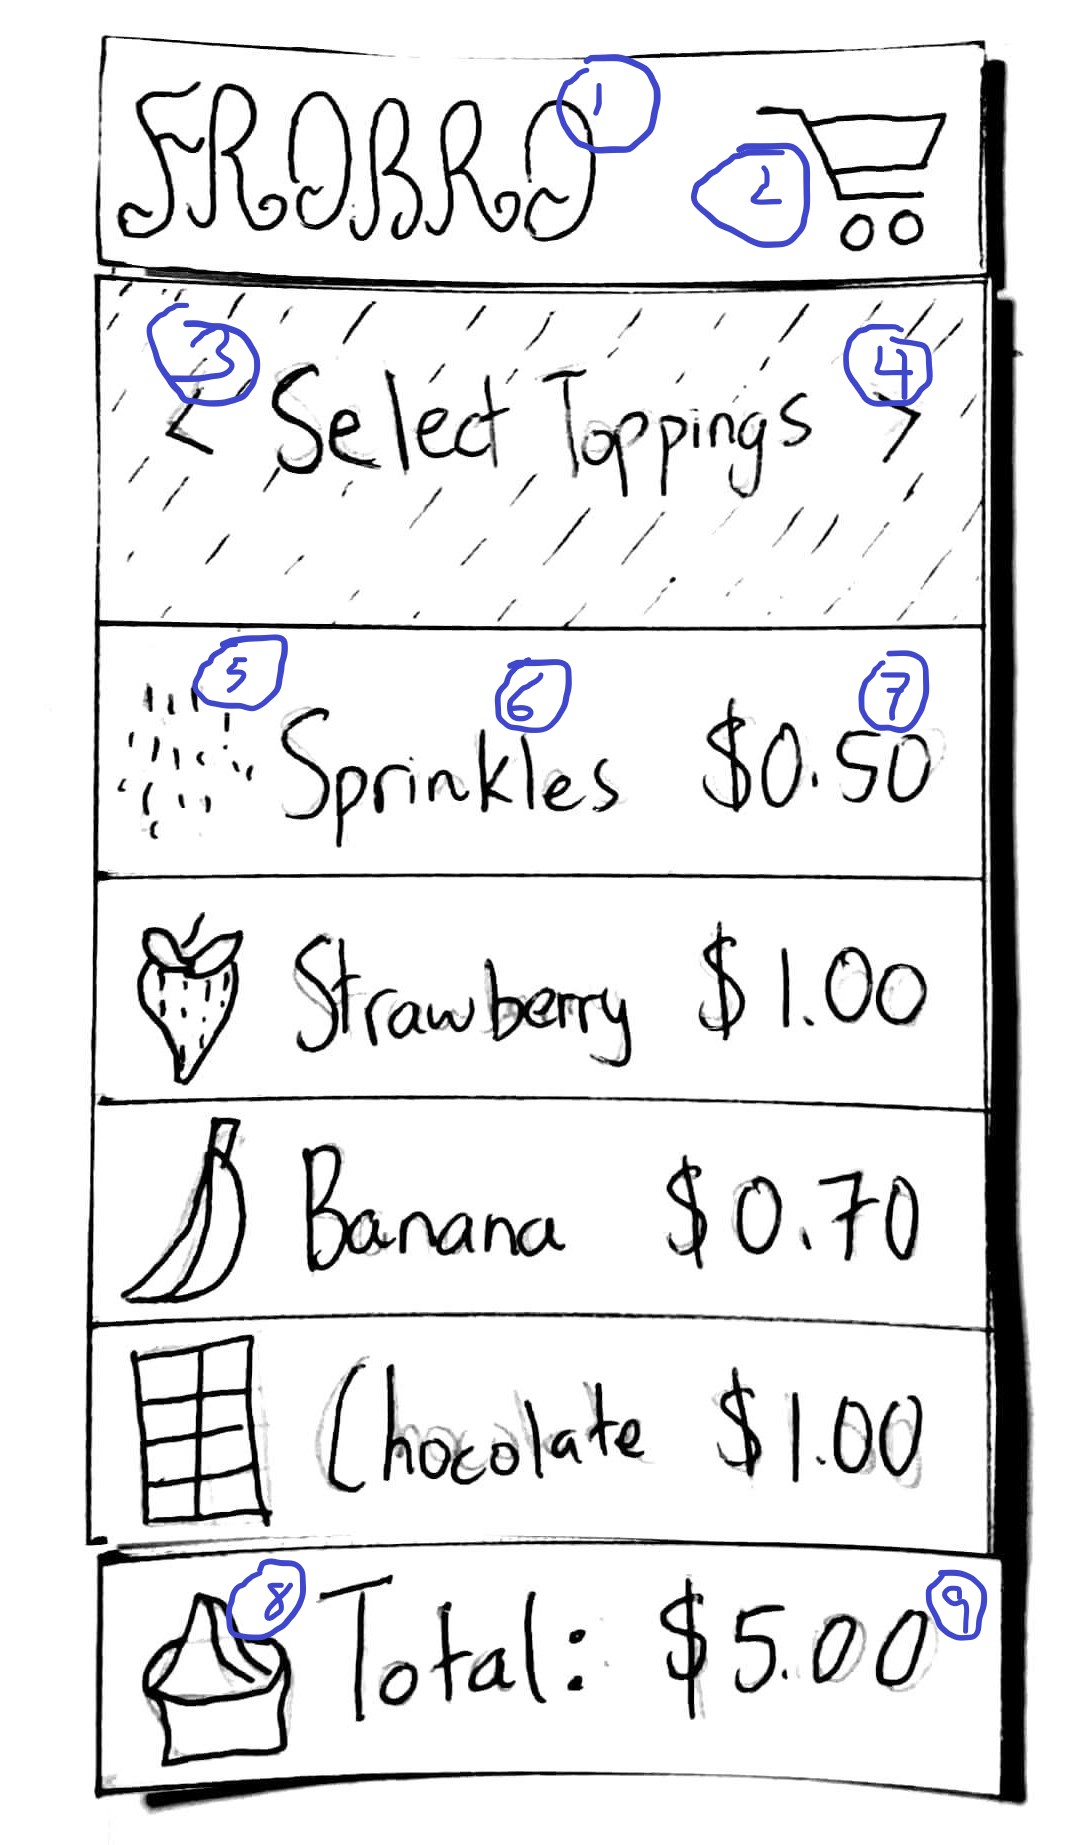 FROBRO 1 2
3 4
< Select Toppings >
5 6 7
Sprinkles $0.50
Strawberry $1.00
Banana $0.70
Chocolate $1.00
8 9
Total: $5.00